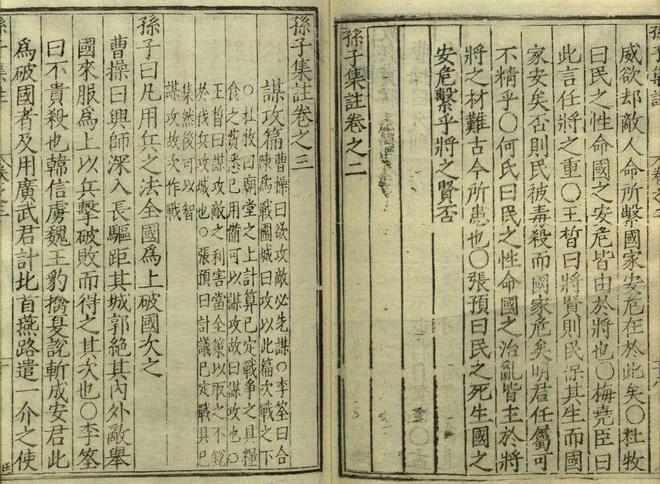 威欲却敵人命所繫國家安危在於此矣○杜牧
曰民之性命國之安危皆由於將也○梅堯臣曰
此言任將之重○王晳曰將賢則民保其生而國
家安矣否則民被毒殺而國家危矣明君任屬可
不精乎○何氏曰民之性命國之治亂皆主於將
將之材難古今所患也○張預曰民之死生國之
安危繫乎將之賢否
孫子集註卷之二
孫子集註卷之三
謀攻篇
曹操曰欲攻敵必先謀○李筌曰合
陳爲戰圍城曰攻以此篇次戰之下
○杜牧曰廟堂之上計算已定戰爭之具糧
食之費悉已用備可以謀攻故曰謀攻也○
王晳曰謀攻敵之利害當全策以取之不銳
於伐兵攻城也○張預曰計議已定戰具已
集然後可以智
謀攻故次作戰
孫子曰凡用兵之法全國爲上破國次之
曹操曰興師深入長驅距其城郭絕其內外敵舉
國來服爲上以兵擊破敗而得之其次也○李筌
曰不貴殺也韓信虜魏王豹擒夏說斬成安君此
爲破國者及用廣武君計北首燕路遣一介之使